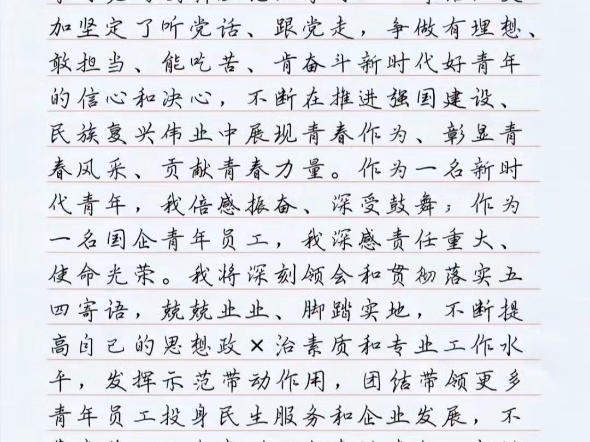 加坚定了听党话、跟党走，争做有理想、
敢担当、能吃苦、肯奋斗新时代好青年
的信心和决心，不断在推进强国建设、
民族复兴伟业中展现青春作为、彰显青
春风采、贡献青春力量。作为一名新时
代青年，我倍感振奋、深受鼓舞；作为
一名国企青年员工，我深感责任重大、
使命光荣。我将深刻领会和贯彻落实五
四寄语，兢兢业业、脚踏实地，不断提
高自己的思想政×治素质和专业工作水
平，发挥示范带动作用，团结带领更多
青年员工投身民生服务和企业发展，不